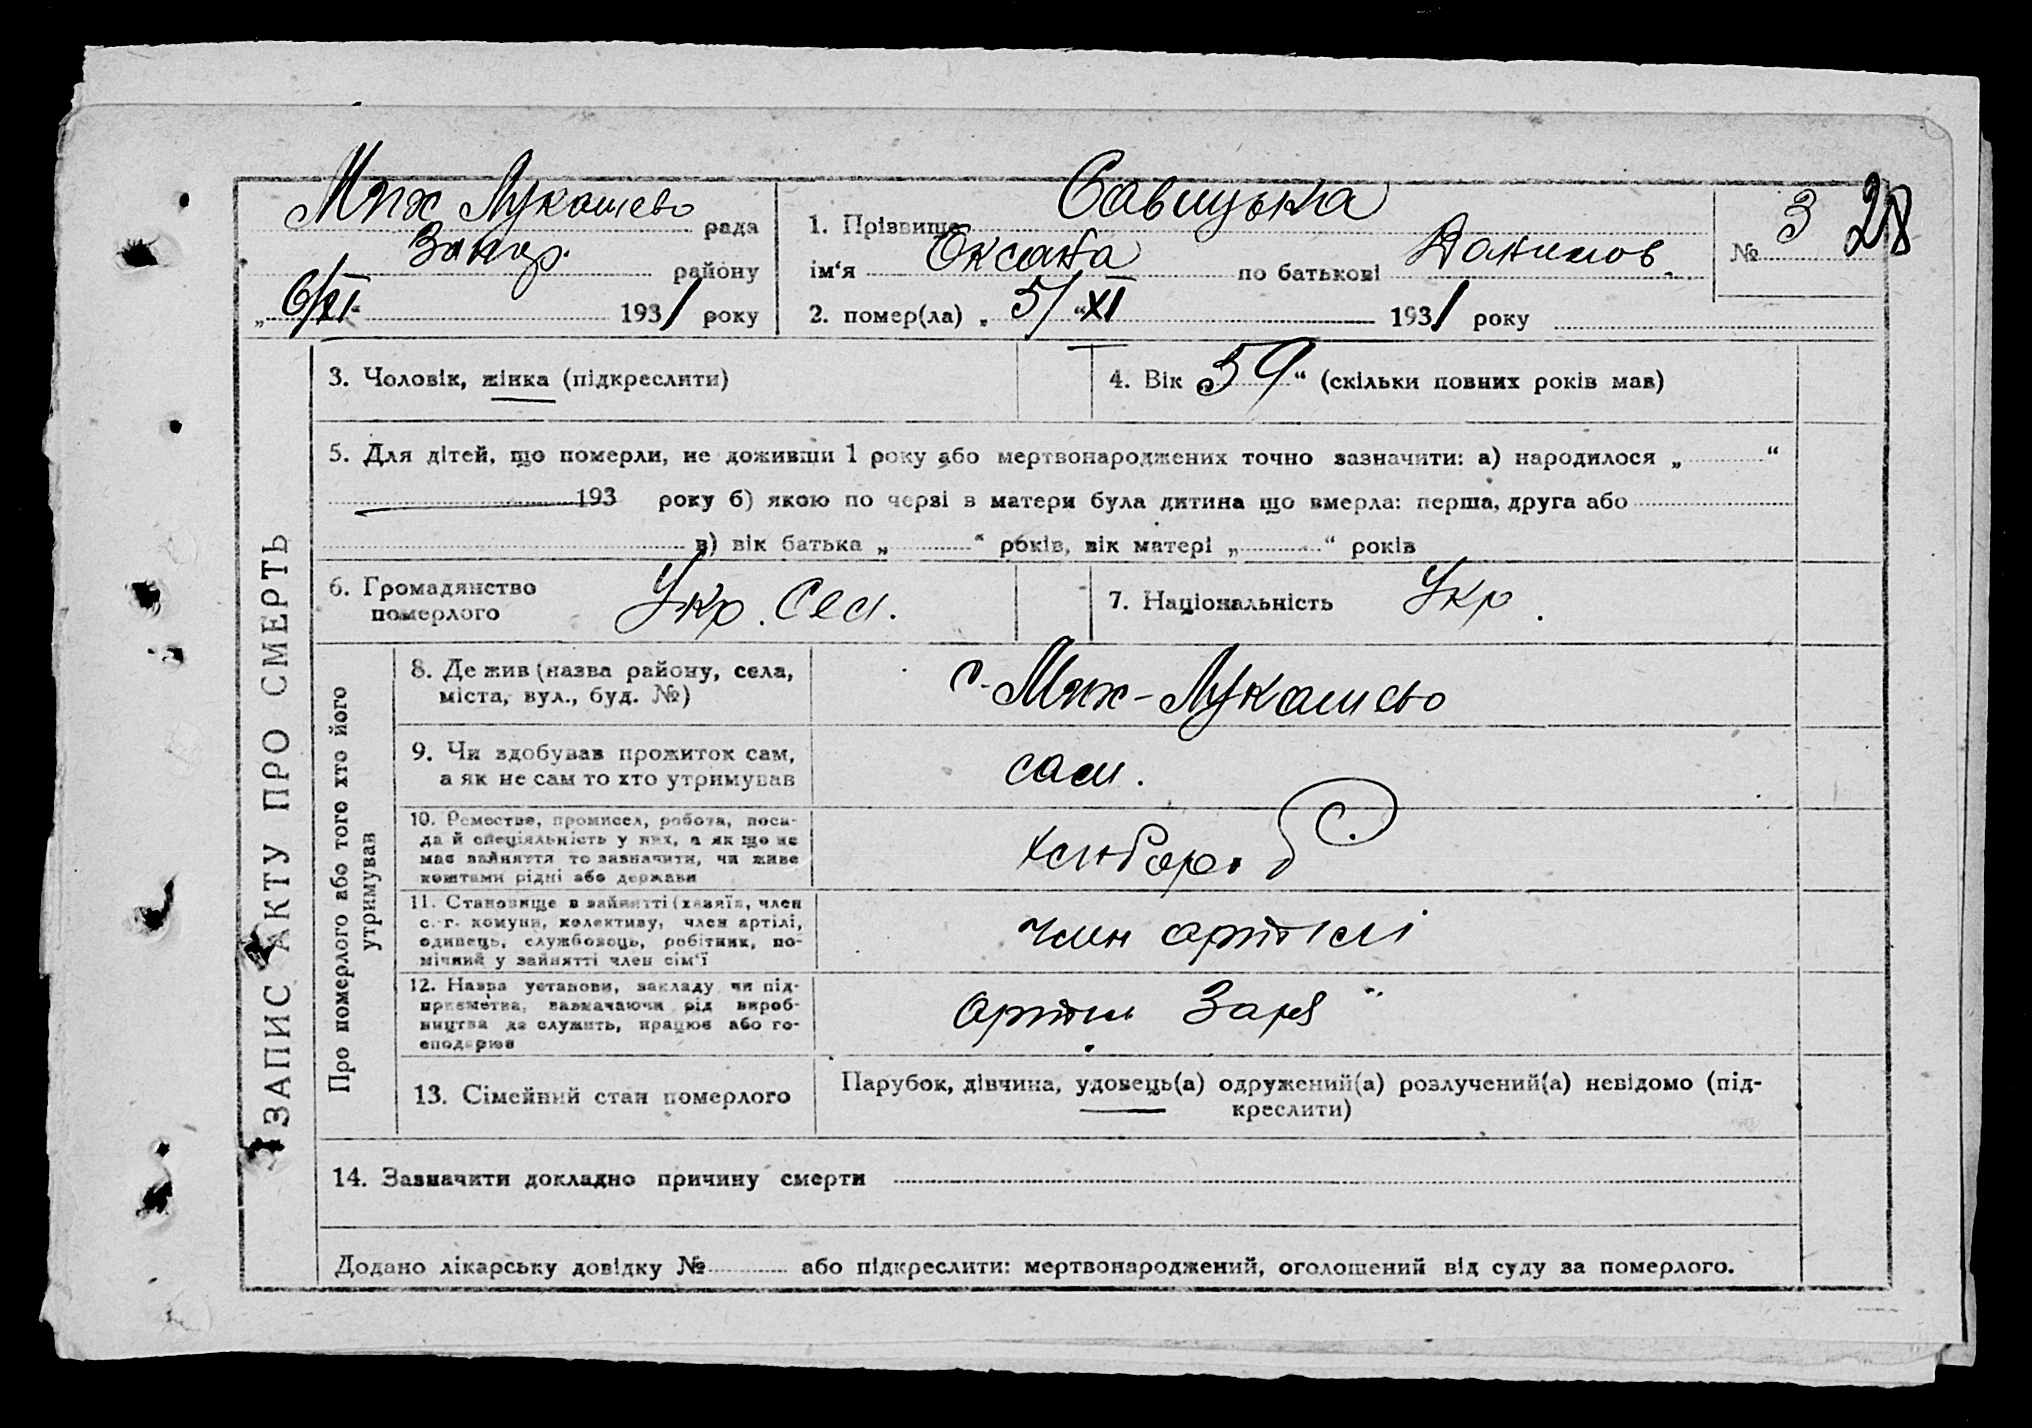 ЗАПИС АКТУ ПРО СМЕРТЬ
Мих Лукашево рада
Запор. району
„6/XI- 1931 року
1. Прізвище Савицька
ім‘я Оксана по батькові Якимов.
2. помер(ла) „ 5/“ XI 1931 року
№ 3 28
3. Чоловік, жінка (підкреслити)
4. Вік „59“ (скільки повних років мав)
5. Для дітей, що померли, не доживши 1 року або мертвонароджених точно зазначити: а) народилося „ “
193 року б) якою по черзі в матери була дитина що вмерла: перша, друга або
в) вік батька „ “ років, вік матері „ “ років
6. Громадянство
померлого
Укр.
7. Національність Укр.
Про померлого або того хто його
утримував
8. Де жив (назва району, села,
міста, вул., буд. №)
с. Мих-Лукашево
9. Чи здобував прожиток сам,
а як не сам то хто утримував
сам.
10. Ремество, промисел, робота, поса-
да й спеціяльність у них, а як що не
має зайняття то зазначити, чи живе
коштами рідні або держави
хлібороб
11. Становище в зайнятті (хазяїн, член
с.-г. комуни, колективу, член артілі,
одинець, службовець, робітник, по-
мічний у зайнятті член сім‘ї
член артілі
12. Назва установи, закладу чи під-
приємства, зазначаючи рід вироб-
ництва де служить, працює або го-
сподарює
Артіль Заря"
13. Сімейний стан померлого
Парубок, дівчина, удовець(а) одружений(а) розлучений(а) невідомо (під-
креслити)
14. Зазначити докладно причину смерти
Додано лікарську довідку № або підкреслити: мертвонароджений, оголошений від суду за померлого.